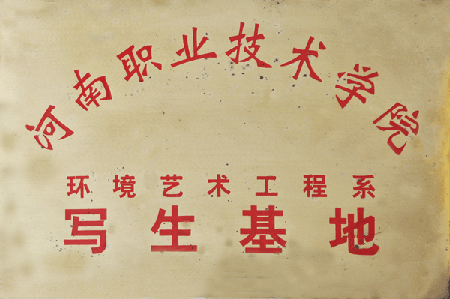 河南职业技术学院
环境艺术工程系
写生基地